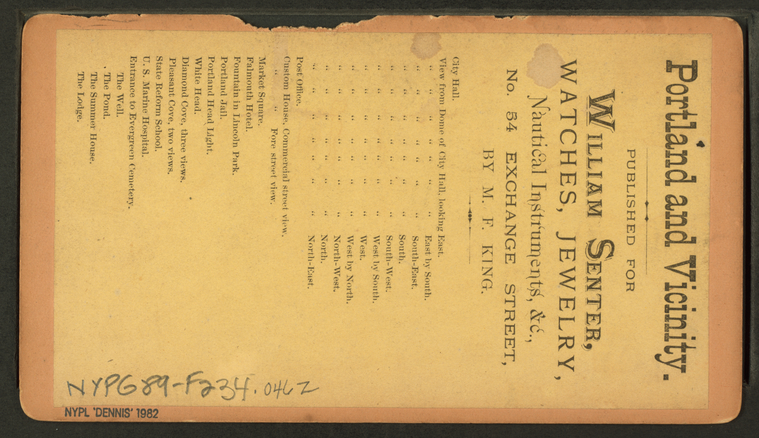 Portland and Vicinity.
PUBLISHED FOR
WILLIAM SENTER,
WATCHES, JEWELRY,
Nautical Instruments, &c.,
No. 54 EXCHANGE STREET,
BY M. F. KING.
City Hall.
View from Dome of City Hall, looking East.
" " " " " " " East by South.
" " " " " " " South-East.
" " " " " " " South.
" " " " " " " South-West.
" " " " " " " West by South.
" " " " " " " West.
" " " " " " " West by North.
" " " " " " " North-West.
" " " " " " " North.
" " " " " " " North-East.
Post Office.
Custom House, Commercial street view.
" " Fore street view.
Market Square.
Falmouth Hotel.
Fountain in Lincoln Park.
Portland Jail.
Portland Head Light.
White Head.
Diamond Cove, three views.
Pleasant Cove, two views.
State Reform School.
U. S. Marine Hospital.
Entrance to Evergreen Cemetery.
The Well.
The Pond.
The Summer House.
The Lodge.
NYPG89-F234.046Z
NYPL 'DENNIS' 1982